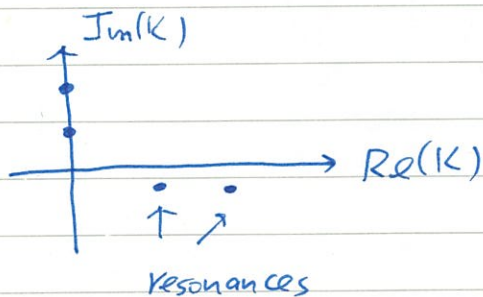 Im(K)
Re(K)
resonances